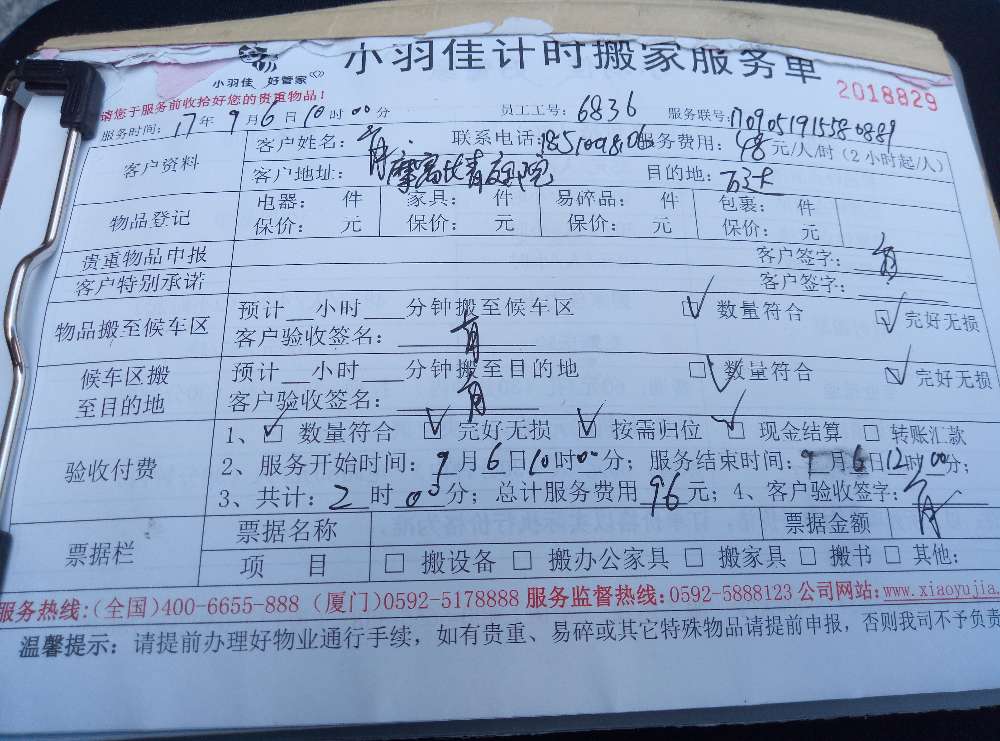 小羽佳计时搬家服务单
小羽佳 好管家
2018829
请您于服务前收拾好您的贵重物品！
服务时间：17年9月6日10时00分 员工工号：6836 服务联号：1709051915580889
客户资料 客户姓名：肖. 联系电话： 服务费用：48元/人/时（2小时起/人）
客户地址： 目的地：
物品登记 电器： 件 家具： 件 易碎品： 件 包裹： 件
保价： 元 保价： 元 保价： 元 保价： 元
贵重物品申报 客户签字：肖
客户特别承诺 客户签字：
物品搬至候车区 预计__小时___分钟搬至候车区 ☑ 数量符合 ☑ 完好无损
客户验收签名：肖
候车区搬至目的地 预计__小时___分钟搬至目的地 ☑ 数量符合 ☑ 完好无损
客户验收签名：肖
验收付费 1、☑ 数量符合 ☑ 完好无损 ☑ 按需归位 ☑ 现金结算 □ 转账汇款
2、服务开始时间：9月6日10时00分；服务结束时间：9月6日12时00分；
3、共计：2时00分；总计服务费用96元；4、客户验收签字：肖
票据栏 票据名称 票据金额
项 目 □ 搬设备 □ 搬办公家具 □ 搬家具 □ 搬书 □ 其他：
服务热线：（全国）400-6655-888（厦门）0592-5178888 服务监督热线：0592-5888123 公司网站：www.xiaoyujia.
温馨提示：请提前办理好物业通行手续，如有贵重、易碎或其它特殊物品请提前申报，否则我司不予负责